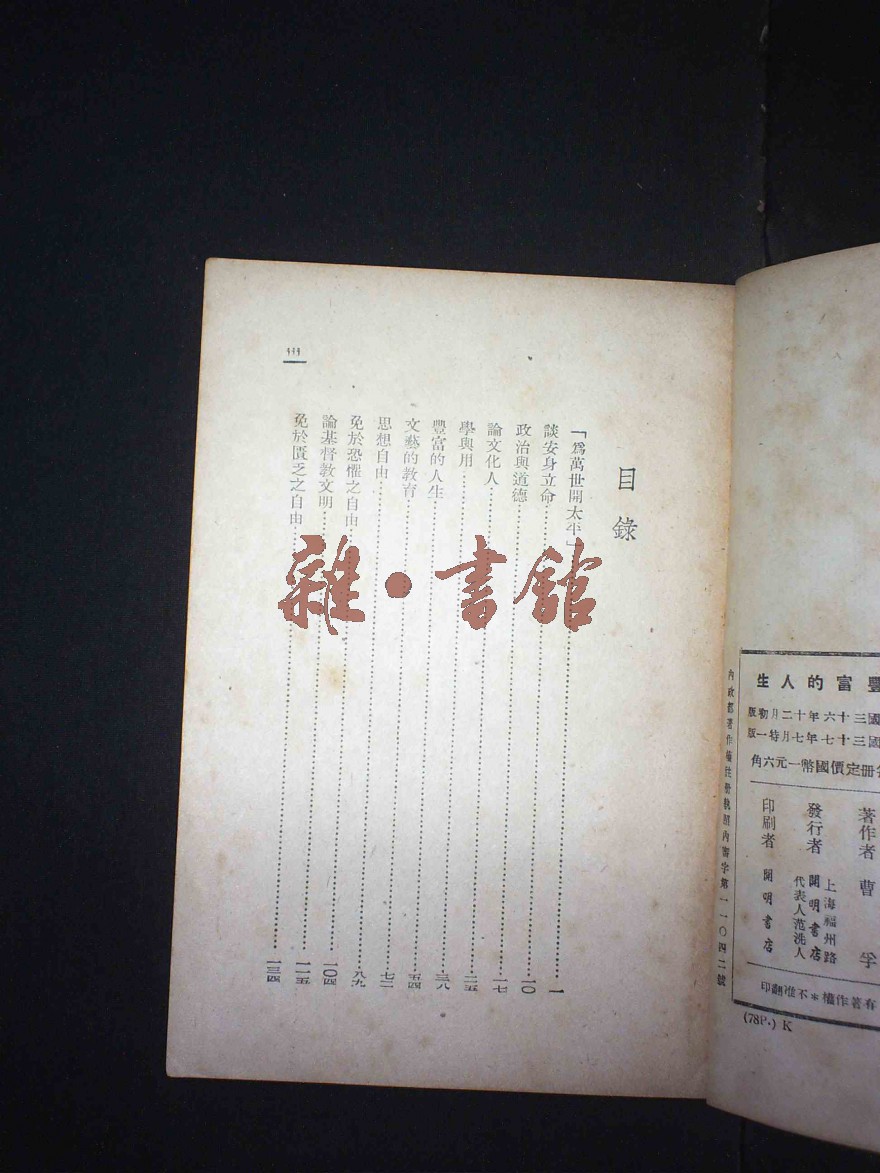 目錄
「爲萬世開太平」……一
談安身立命……一〇
政治與道德……一七
論文化人……二五
學與用……三八
豐富的人生……五四
文藝的教育……七二
思想自由……八九
免於恐懼之自由……一〇四
論基督教文明……一一五
免於匱乏之自由……一三四
雜·書館
豐富的人生
國三十六年十二月初版
國三十七年七月特一版
冊定價國幣一元六角
著作者 曹孚
發行者 上海福州路 開明書店 代表人范洗人
印刷者 開明書店
有著作權*不准翻印
內政部著作權註冊執照內審字第一一〇四二號
(78P.) K